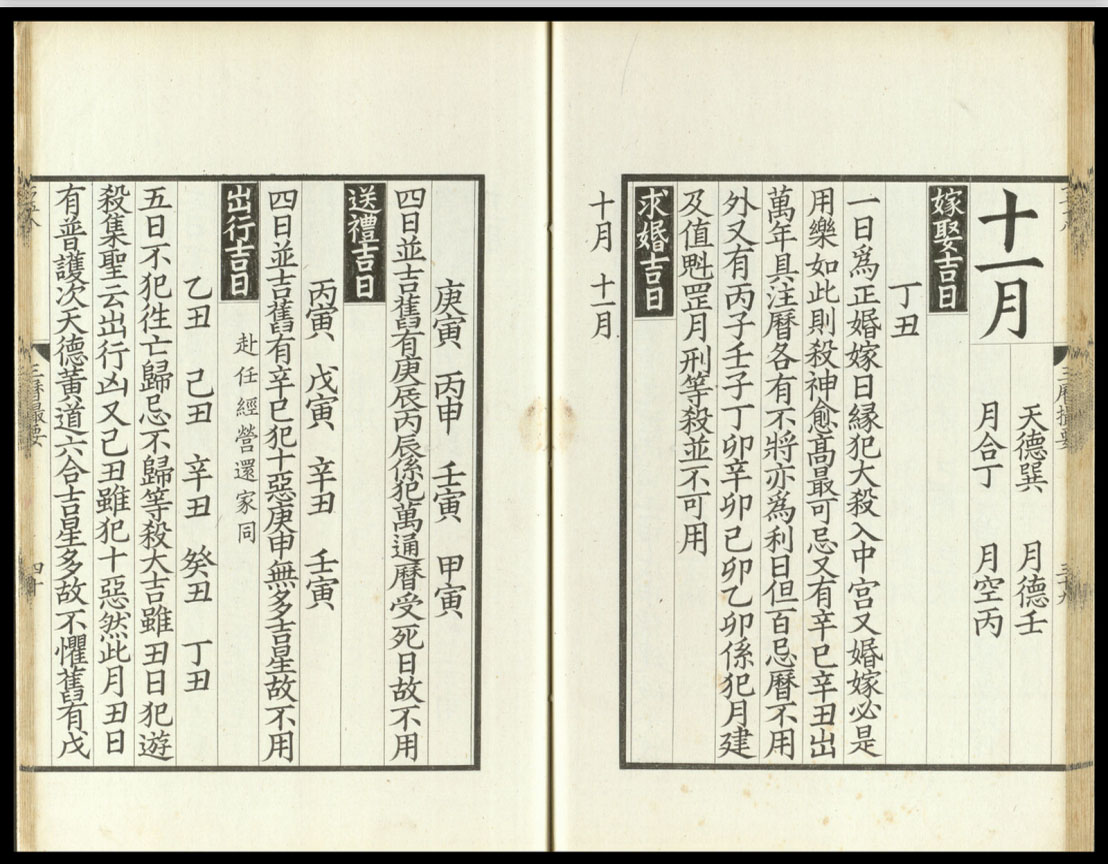 十一月
天德巽 月德壬
月合丁 月空丙
嫁娶吉日
丁丑
一日爲正婚嫁日緣犯大殺入中宫又婚嫁必是
用樂如此則殺神愈髙最可忌又有辛巳辛丑出
萬年具注曆各有不將亦爲利日但百忌曆不用
外又有丙子壬子丁卯辛卯己卯乙卯係犯月建
及值魁罡月刑等殺並不可用
求婚吉日
十月 十一月
庚寅 丙申 壬寅 甲寅
四日並吉舊有庚辰丙辰係犯萬通曆受死日故不用
送禮吉日
丙寅 戊寅 辛丑 壬寅
四日並吉舊有辛巳犯十惡庚申無多吉星故不用
出行吉日 赴任經營還家同
乙丑 己丑 辛丑 癸丑 丁丑
五日不犯徃亡歸忌不歸等殺大吉雖丑日犯遊
殺集聖云出行凶又己丑雖犯十惡然此月丑日
有普護次天德黃道六合吉星多故不懼舊有戊
三曆撮要